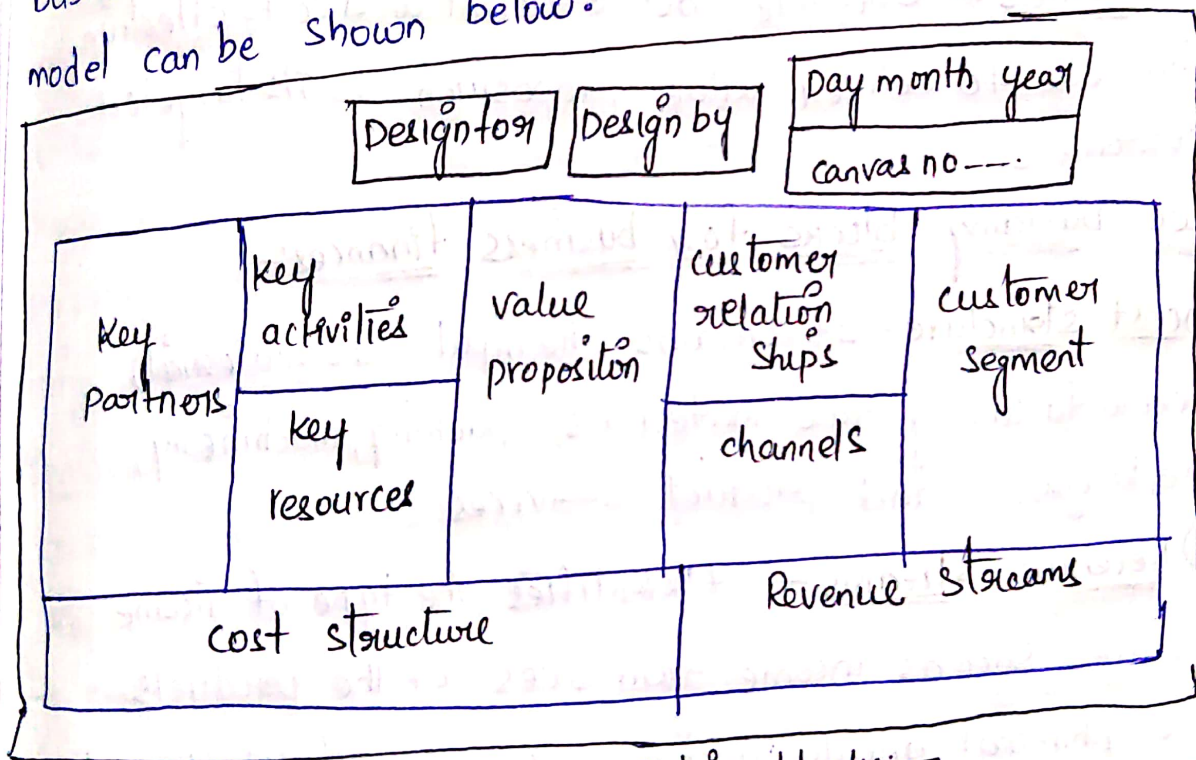 model can be shown below.
Design for
Design by
Day month year
canvas no---.
Key
partners
key
activities
key
resources
value
propositon
customer
relation
ships
channels
customer
segment
cost structure
Revenue streams